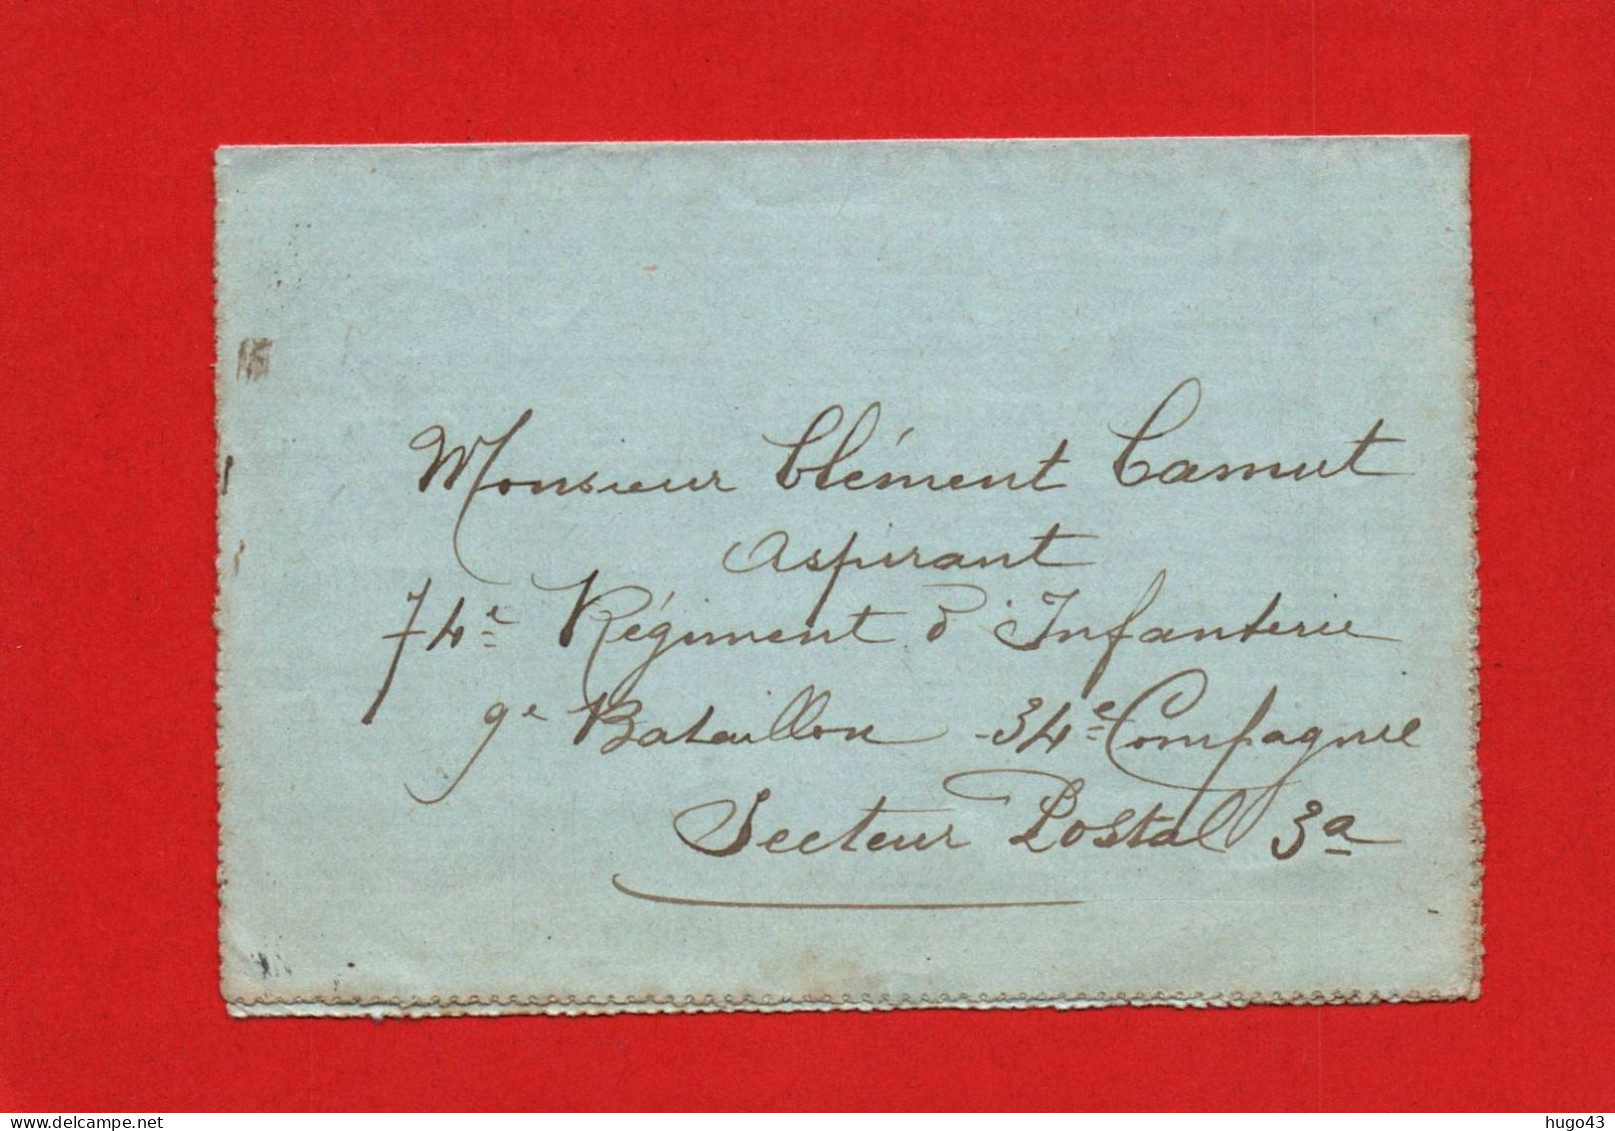 Monsieur Clément Camut
Aspirant
74e Régiment d'Infanterie
9e Bataillon - 34e Compagnie
Secteur Postal 3a
delcampe.net
hugo43